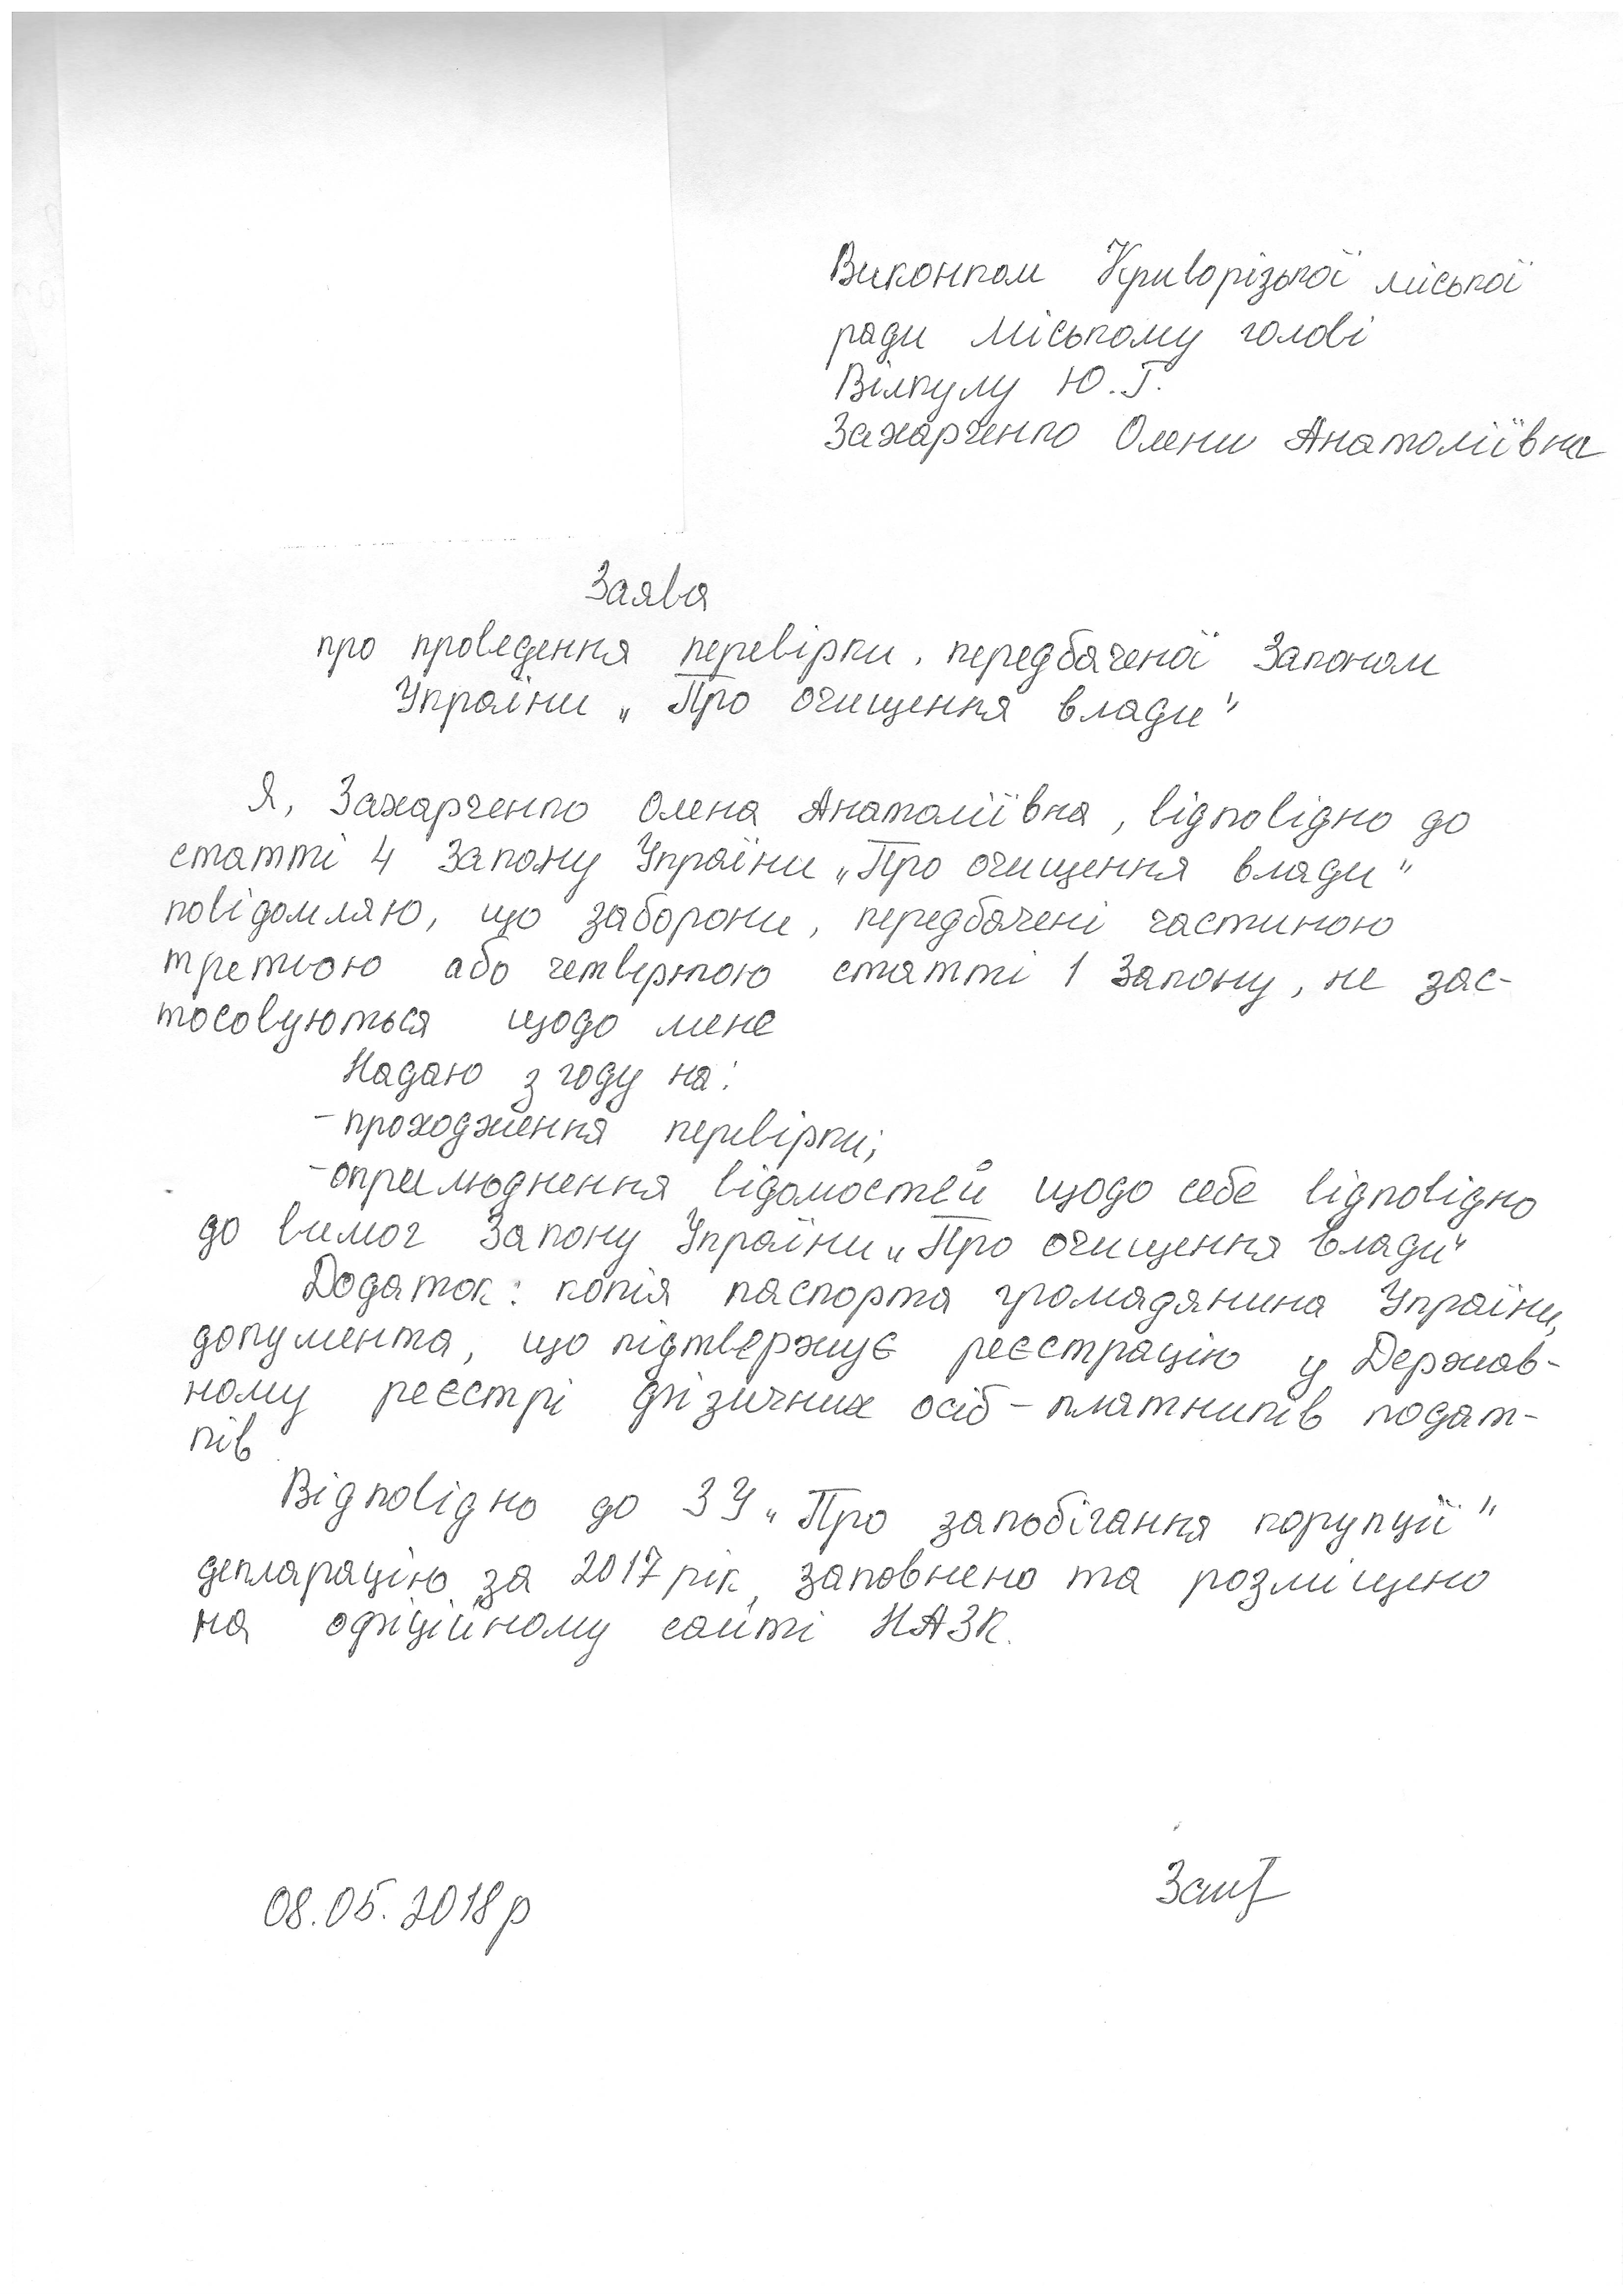 Виконком Криворізької міської
ради Міському голові
Вілкулу Ю.Г.
Захарченко Олени Анатоліївна
Заява
про проведення перевірки, передбаченої Законом
України „Про очищення влади"
Я, Захарченко Олена Анатоліївна, відповідно до
статті 4 Закону України „Про очищення влади"
повідомляю, що заборони, передбачені частиною
третьою або четвертою статті 1 Закону, не зас-
тосовуються щодо мене
Надаю згоду на:
- проходження перевірки;
- оприлюднення відомостей щодо себе відповідно
до вимог Закону України „Про очищення влади"
Додаток: копія паспорта громадянина України,
документа, що підтвержує реєстрацію у Держав-
ному реєстрі фізичних осіб - платників подат-
ків
Відповідно до ЗУ „Про запобігання корупції"
декларацію за 2017 рік, заповнено та розміщено
на офіційному сайті НАЗК.
08.05.2018р